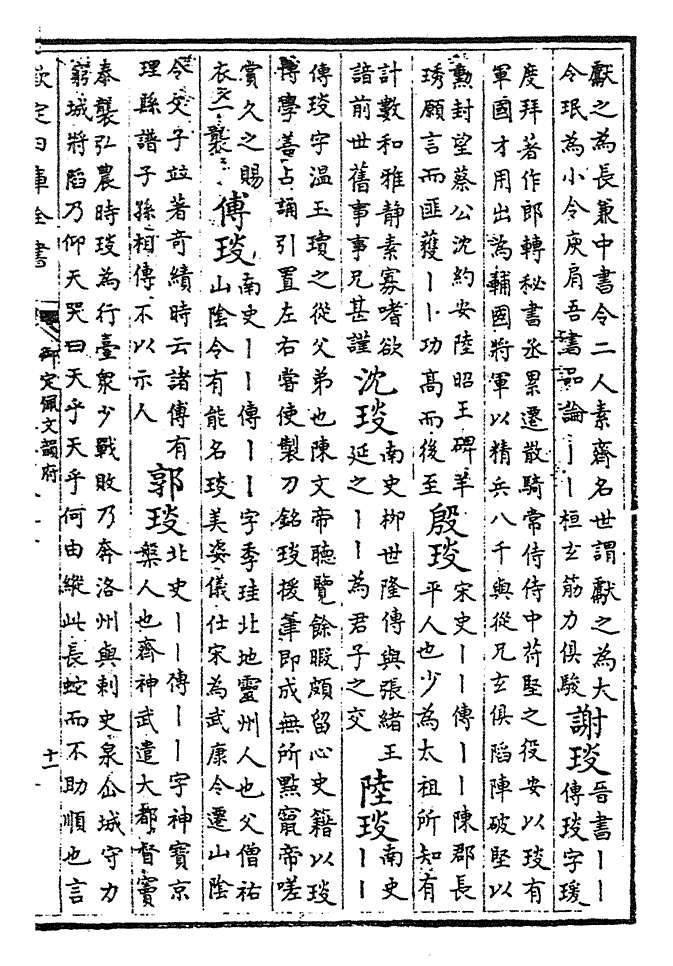 獻之為長兼中書令二人素齊名世謂獻之為大
令珉為小令庾肩吾書品論丨丨桓玄筋力俱駿
謝琰
晉書丨丨
傳琰字瑗
度拜著作郎轉秘書丞累遷散騎常侍侍中苻堅之役安以琰有
軍國才用出為輔國將軍以精兵八千與從兄玄俱陷陣破堅以
勲封望蔡公沈約安陸昭王碑羊
琇願言而匪獲丨丨功高而後至
殷琰
宋史丨丨傳丨丨陳郡長
平人也少為太祖所知有
計數和雅静素寡嗜欲
諳前世舊事事兄甚謹
沈琰
南史栁世隆傳與張緒王
延之丨丨為君子之交
陸琰
南史
丨丨
傳琰字温玉瓊之從父弟也陳文帝聽覽餘暇頗留心史籍以琰
博學善占誦引置左右嘗使製刀銘琰援筆即成無所點竄帝嗟
賞久之賜
衣一襲
傅琰
南史丨丨傳丨丨字季珪北地靈州人也父僧祐
山陰令有能名琰美姿儀仕宋為武康令遷山陰
令父子竝著奇績時云諸傅有
理縣譜子孫相傳不以示人
郭琰
北史丨丨傳丨丨字神寶京
槃人也齊神武遣大都督竇
泰襲弘農時琰為行臺衆少戰敗乃奔洛州與刺史泉仚城守力
窮城將陷乃仰天哭曰天乎天乎何由縱此長蛇而不助順也言
欽定四庫全書
御定佩文韻府
十一